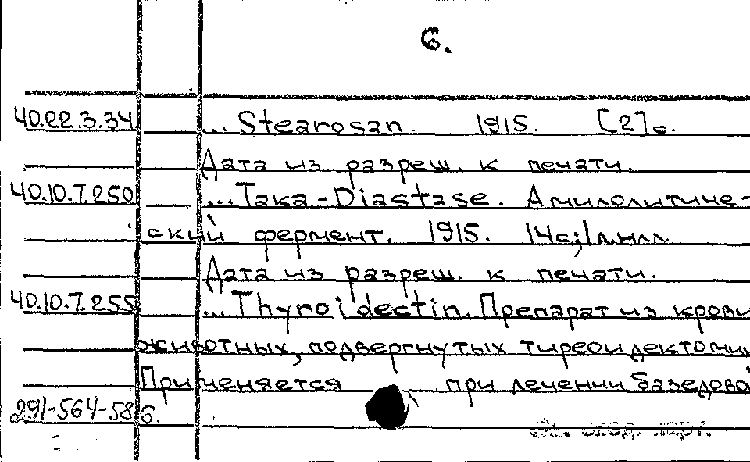 6.
40.22.3.34 ... Stearosan. 1915. [2]с.
Дата из разреш. к печати.
40.10.7.250 ... Taka-Diastase. Амилолитиче-
ский фермент. 1915. 14с; 1 л.илл.
Дата из разреш. к печати.
40.10.7.255 ... Thyroidectin. Препарат из крови
животных, подвергнутых тиреоидектомии
Применяется при лечении базедовой
291-564-586.
См. след. карт.